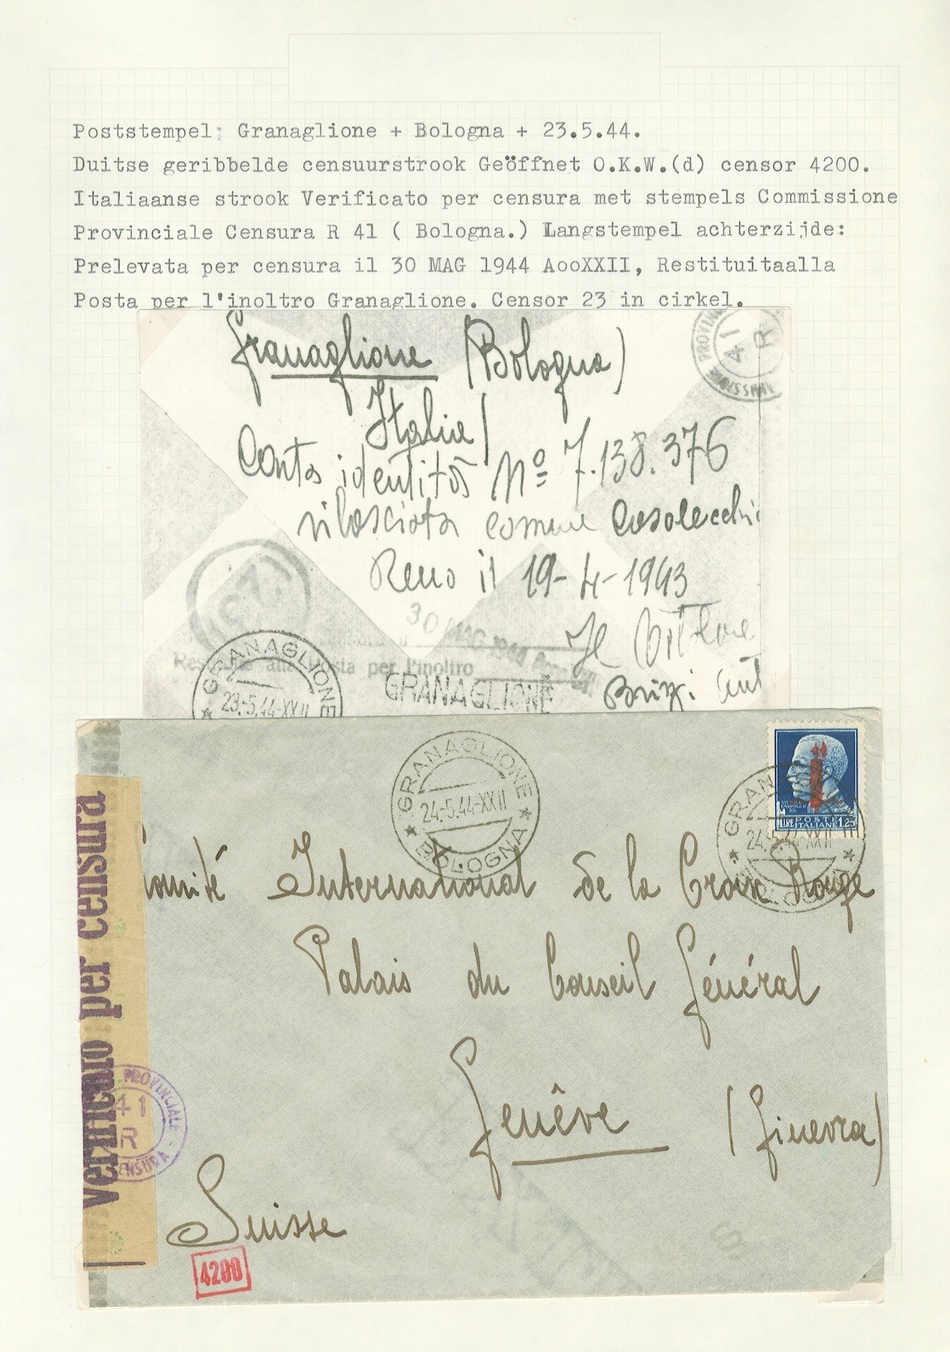 Poststempel: Granaglione + Bologna + 23.5.44.
Duitse geribbelde censuurstrook Geöffnet O.K.W.(d) censor 4200.
Italiaanse strook Verificato per censura met stempels Commissione
Provinciale Censura R 41 ( Bologna.) Langstempel achterzijde:
Prelevata per censura il 30 MAG 1944 AooXXII, Restituitaalla
Posta per l'inoltro Granaglione. Censor 23 in cirkel.
Granaglione (Bologna)
41 R
Italia
Carta identità Nº 7.138.376
rilasciata comune Casalecchio
Reno il 19-4-1943
23
30 MAG 1944
alla Posta per l'inoltro
GRANAGLIONE
GRANAGLIONE
23.-5.44-XXII
GRANAGLIONE
24.-5.44-XXII
BOLOGNA
POSTE
LIRE ITALIANE 1,25
Comité International de la Croix Rouge
Palais du Conseil Général
Genêve (Ginevra)
Suisse
Verificato per censura
PROVINCIALE
41
R
CENSURA
4200